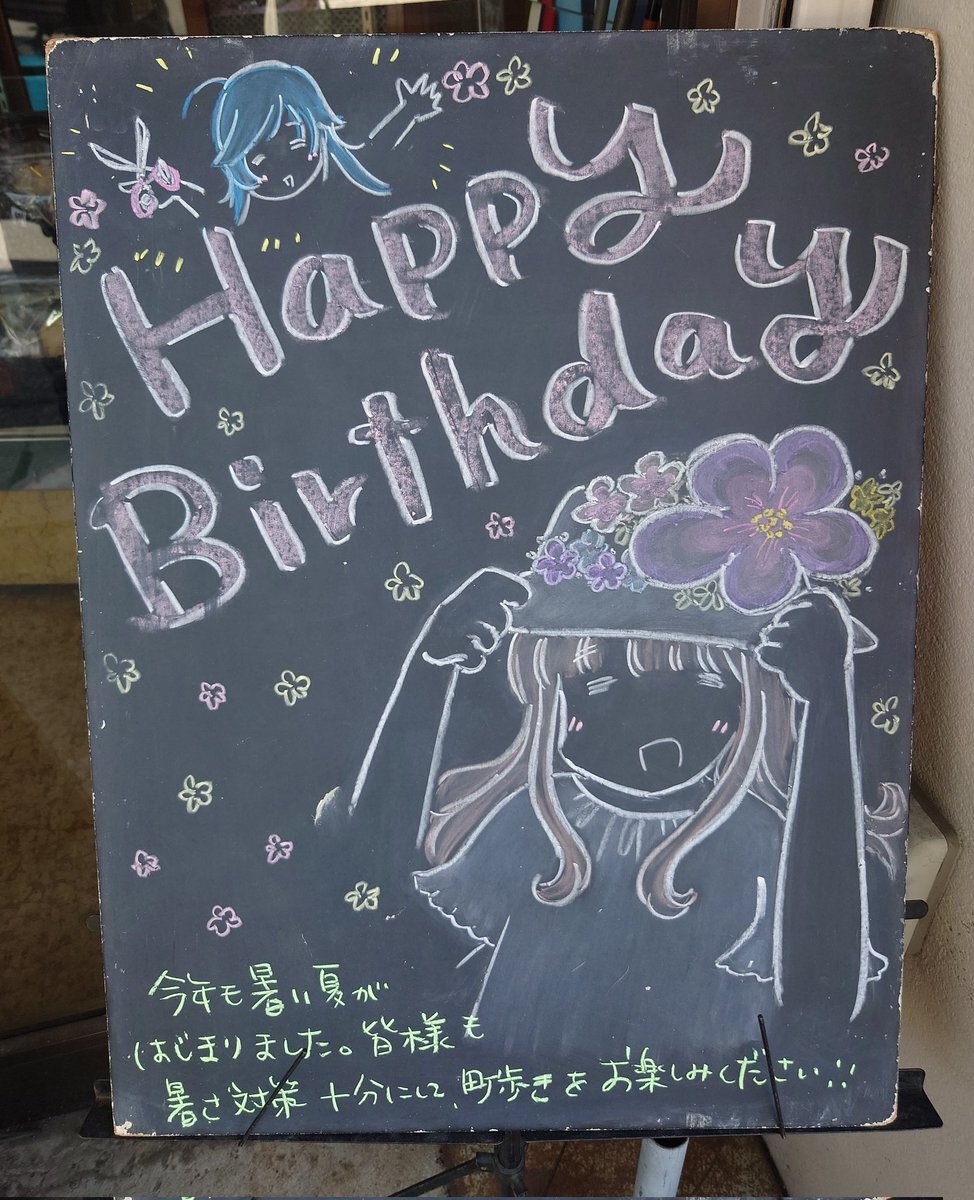 Happy
Birthday
今年も暑い夏が
はじまりました。皆様も
暑さ対策十分にして、町歩きをお楽しみください!!